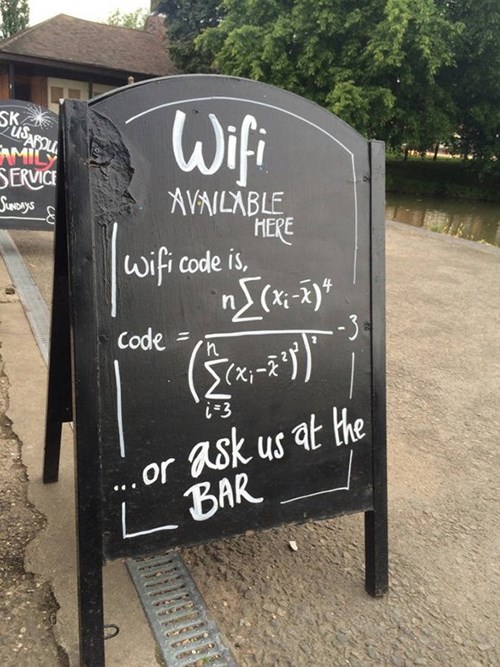 SK
US ABOU
AMILY
SERVICE
SUNDAYS
Wifi
AVAILABLE
HERE
wifi code is,
code = n∑(xᵢ-x̄)⁴ / (ⁿ∑ᵢ₌₃(xᵢ-x̄²)³)² - 3
...or ask us at the
BAR